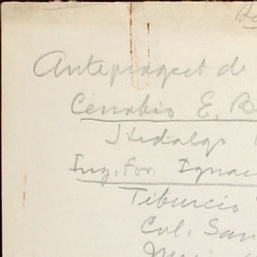 Anteproyect de
Cenobio E. B
Hidalgo
Ing. For. Ignac
Tiburcio
Col. San